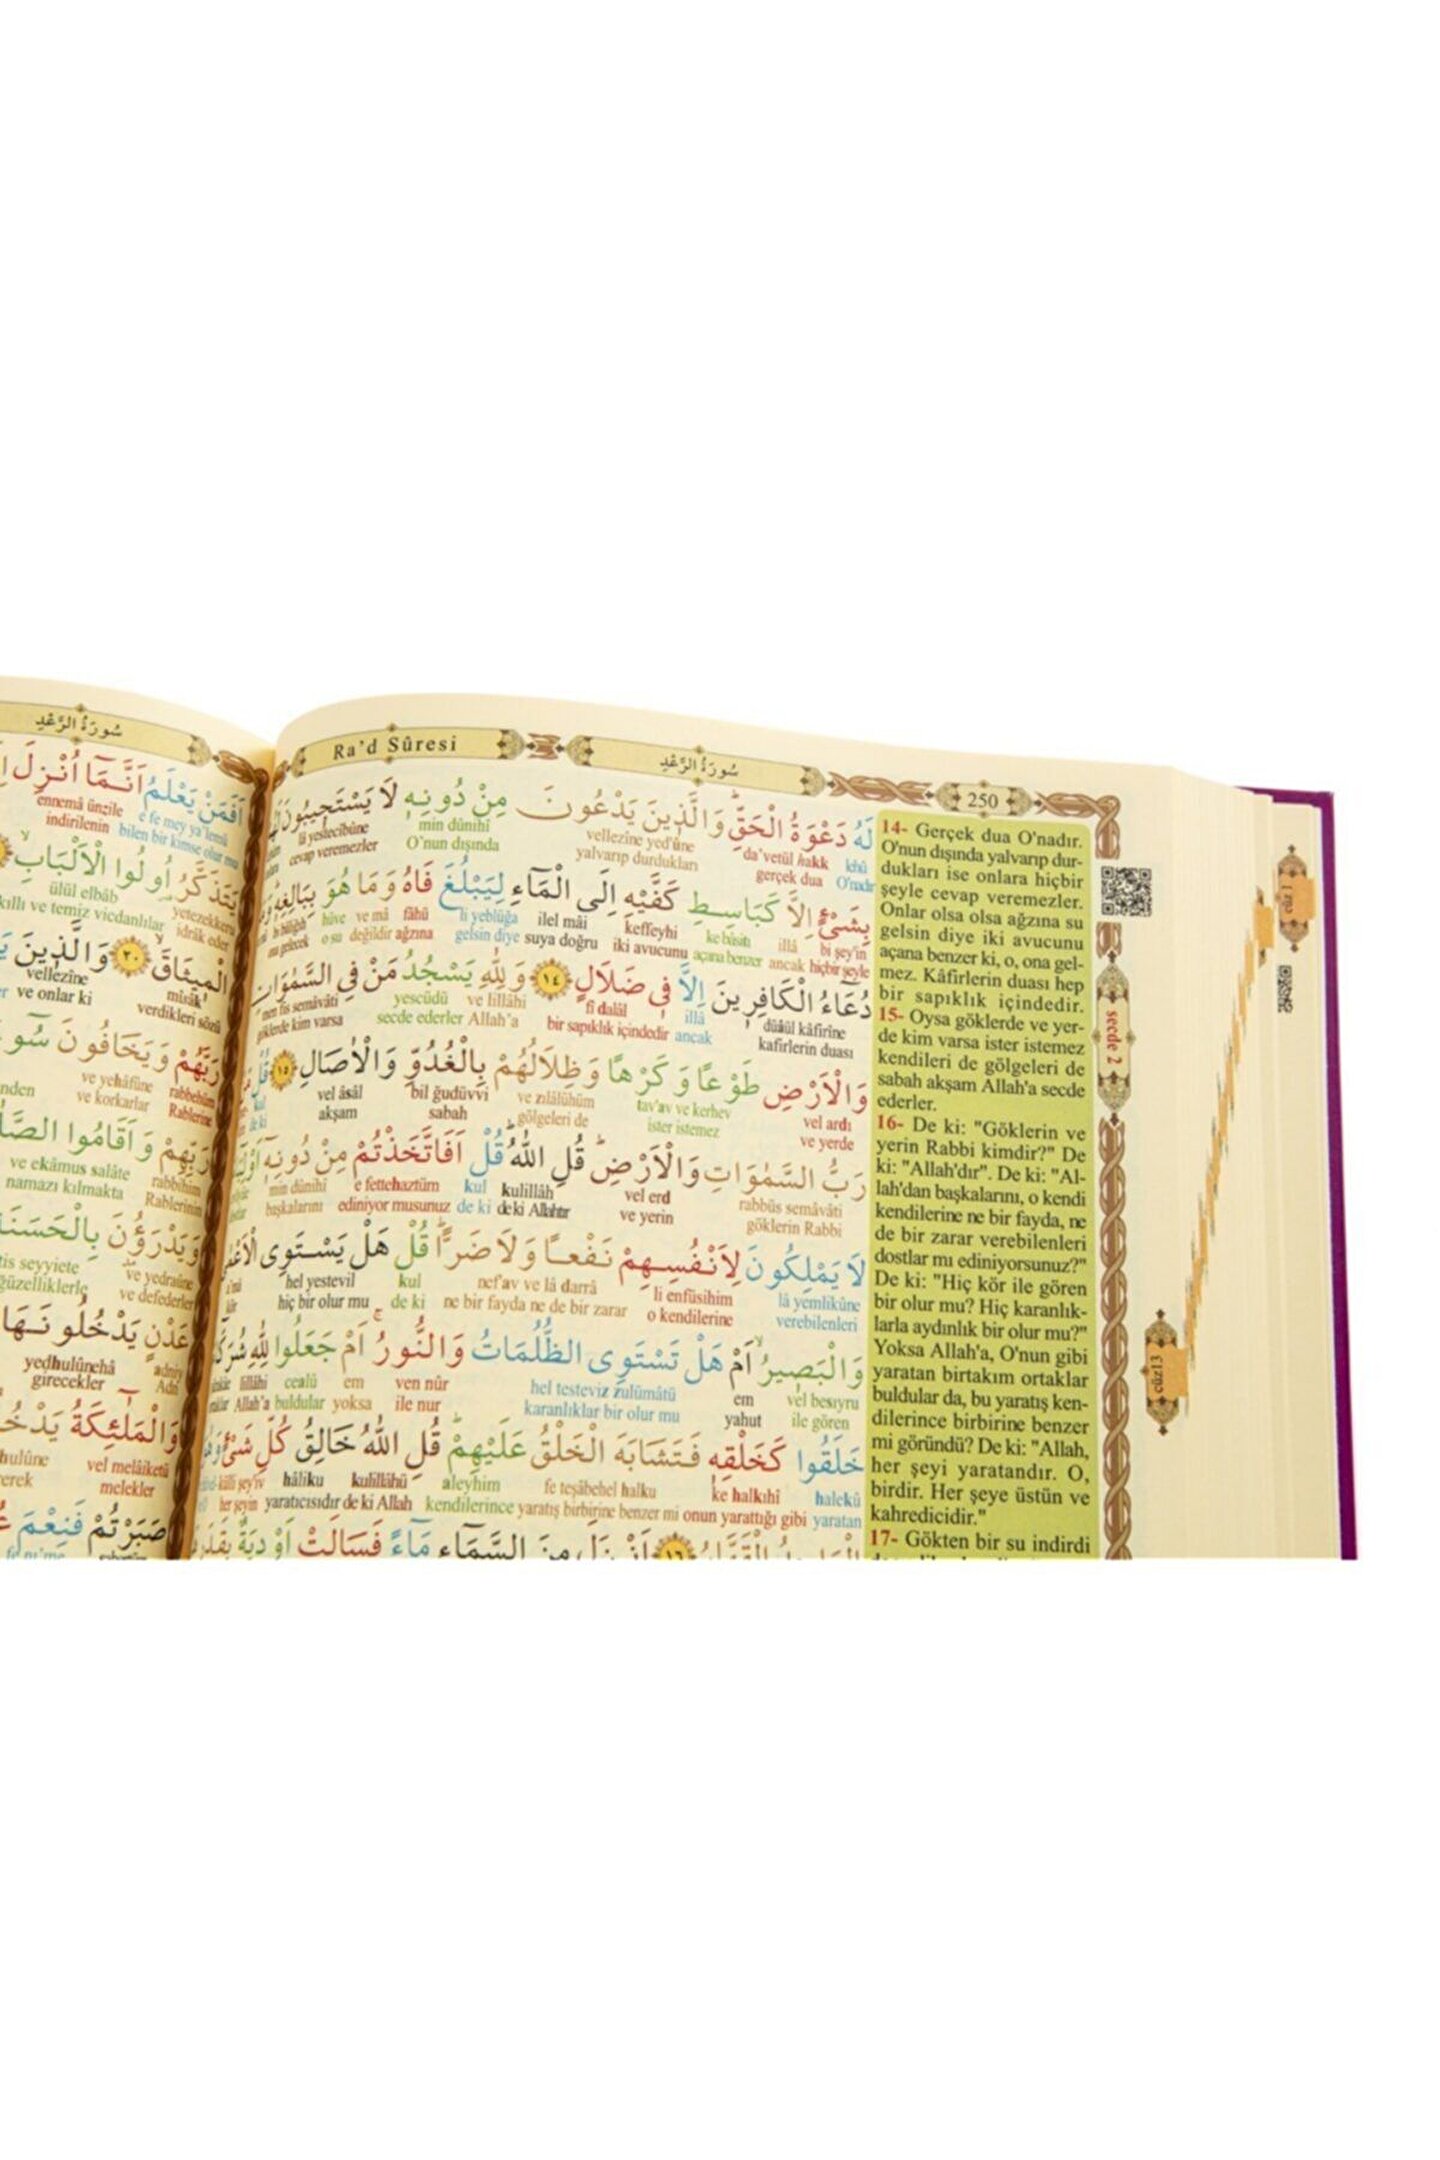 سُورَةُ الرَّعْدِ
Ra'd Sûresi
سُورَةُ الرَّعْدِ
250
اَفَمَنْ يَعْلَمُ اَنَّمَٓا اُنْزِلَ
ennemâ ünzile e fe mey ya'lemü
indirilenin bilen bir kimse olur mu
يَتَذَكَّرُ اُو۬لُوا الْاَلْبَابِۙ
ülül elbâb yetezekkeru
vicdanlılar idrâk eder
الْم۪يثَاقَۙ ﴿٢٠﴾ وَالَّذ۪ينَ
vellezîne mîsâk
ve onlar ki verdikleri sözü
رَبَّهُمْ وَيَخَافُونَ سُٓوءَ
ve yehâfûne rabbehüm
ve korkarlar Rablerine
رَبِّهِمْ وَاَقَامُوا
ve ekâmus salâte rabbihim
namazı kılmakta Rablerinin
وَيَدْرَؤُ۫نَ بِالْحَسَنَةِ
ve yedraûne
güzelliklerle ve defederler
عَدْنٍ يَدْخُلُونَهَا
yedhulûnehâ adniy
girecekler Adn
وَالْمَلٰٓئِكَةُ
vel melâiketü
melekler
صَبَرْتُمْ فَنِعْمَ
لَهُ دَعْوَةُ الْحَقِّۜ وَالَّذ۪ينَ يَدْعُونَ مِنْ دُونِه۪ لَا يَسْتَج۪يبُونَ
lehû da'vetül hakk vellezîne yed'ûne min dûnihî lâ yestecîbûne
O'nadır gerçek dua yalvarıp durdukları O'nun dışında cevap veremezler
بِشَيْءٍ اِلَّا كَبَاسِطِ كَفَّيْهِ اِلَى الْمَٓاءِ لِيَبْلُغَ فَاهُ وَمَا هُوَ بِبَالِغِه۪ۜ
bi şey'in illâ ke bâsitı keffeyhi ilel mâi li yeblüğa fâhü ve mâ hüve
hiçbir şeyle ancak açana benzer iki avucunu suya doğru gelsin diye ağzına değildir o su
دُعَٓاءُ الْكَافِر۪ينَ اِلَّا ف۪ي ضَلَالٍ ﴿١٤﴾ وَلِلّٰهِ يَسْجُدُ مَنْ فِي السَّمٰوَاتِ
düâül kâfirîne illâ fî dalâl ve lillâhi yescüdü men fis semâvâti
kafirlerin duası ancak bir sapıklık içindedir Allah'a secde ederler göklerde kim varsa
وَالْاَرْضِ طَوْعًا وَكَرْهًا وَظِلَالُهُمْ بِالْغُدُوِّ وَالْاٰصَالِ ﴿١٥﴾ قُلْ
vel ardı tav'av ve kerhev ve zılâlühüm bil ğudüvvi vel âsâl kul
ve yerde ister istemez gölgeleri de sabah akşam de ki
رَبُّ السَّمٰوَاتِ وَالْاَرْضِۜ قُلِ اللّٰهُۜ قُلْ اَفَاتَّخَذْتُمْ مِنْ دُونِه۪ٓ
rabbüs semâvâti vel erd kulillâh kul e fettehaztüm min dûnihî
göklerin Rabbi ve yerin de ki Allahtır de ki ediniyor musunuz başkalarını
لَا يَمْلِكُونَ لِاَنْفُسِهِمْ نَفْعًا وَلَا ضَرًّاۜ قُلْ هَلْ يَسْتَوِي الْاَعْمٰى
lâ yemlikûne li enfüsihim nef'av ve lâ darrâ kul hel yestevil
verebilenleri o kendilerine ne bir fayda ne de bir zarar de ki hiç bir olur mu kör
وَالْبَص۪يرُۙ اَمْ هَلْ تَسْتَوِي الظُّلُمَاتُ وَالنُّورُۚ اَمْ جَعَلُوا لِلّٰهِ
vel besıyru em hel testeviz zulümâtü ven nûr em cealû lillâhi
ile gören yahut karanlıklar bir olur mu ile nur yoksa buldular Allah'a
خَلَقُوا كَخَلْقِه۪ فَتَشَابَهَ الْخَلْقُ عَلَيْهِمْۜ قُلِ اللّٰهُ خَالِقُ كُلِّ شَيْءٍ
halekû ke halkıhî fe teşâbehel halku aleyhim kulillâhü hâliku külli şey'iv
yaratan onun yarattığı gibi yaratış birbirine benzer mi kendilerince de ki Allah yaratıcısıdır her şeyin
﴿١٦﴾ اَنْزَلَ مِنَ السَّمَٓاءِ مَٓاءً فَسَالَتْ اَوْدِيَةٌ
14- Gerçek dua O'nadır.
O'nun dışında yalvarıp dur-
dukları ise onlara hiçbir
şeyle cevap veremezler.
Onlar olsa olsa ağzına su
gelsin diye iki avucunu
açana benzer ki, o, ona gel-
mez. Kâfirlerin duası hep
bir sapıklık içindedir.
15- Oysa göklerde ve yer-
de kim varsa ister istemez
kendileri de gölgeleri de
sabah akşam Allah'a secde
ederler.
16- De ki: "Göklerin ve
yerin Rabbi kimdir?" De
ki: "Allah'dır". De ki: "Al-
lah'dan başkalarını, o kendi
kendilerine ne bir fayda, ne
de bir zarar verebilenleri
dostlar mı ediniyorsunuz?"
De ki: "Hiç kör ile gören
bir olur mu? Hiç karanlık-
larla aydınlık bir olur mu?"
Yoksa Allah'a, O'nun gibi
yaratan birtakım ortaklar
buldular da, bu yaratış ken-
dilerince birbirine benzer
mi göründü? De ki: "Allah,
her şeyi yaratandır. O,
birdir. Her şeye üstün ve
kahredicidir."
17- Gökten bir su indirdi
secde 2
cüz13
cüz1